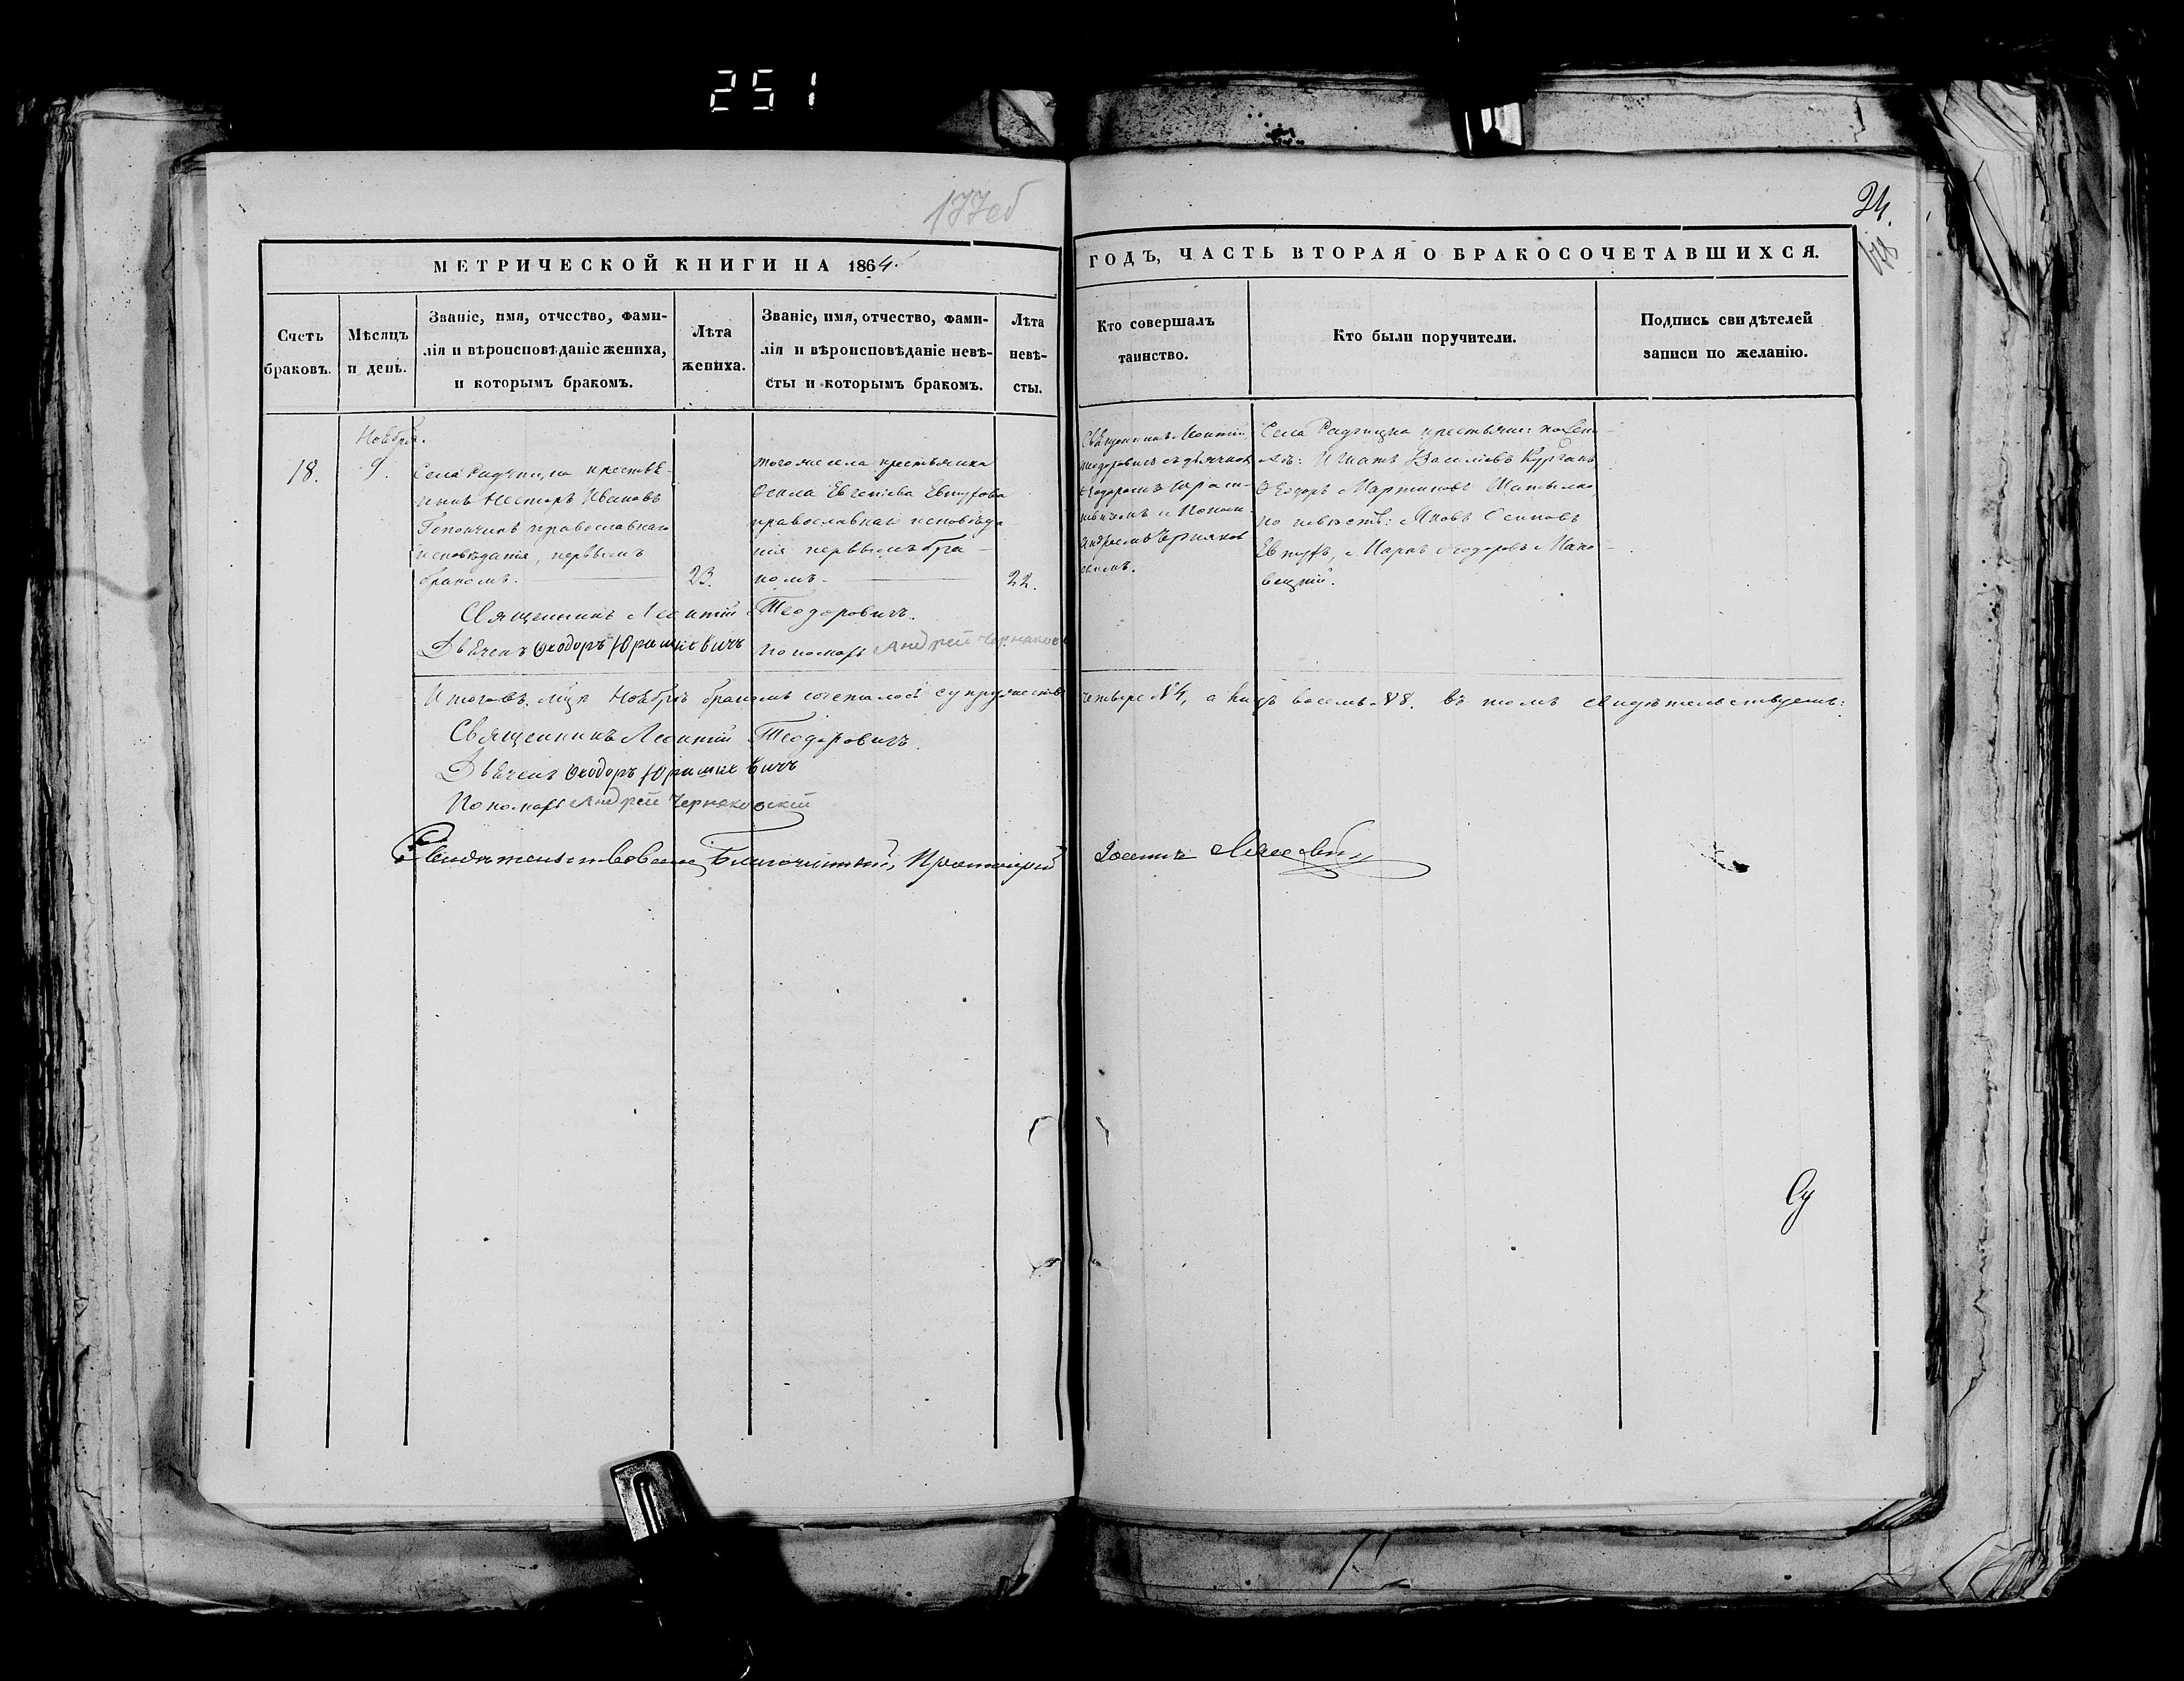 251
177об
24.
178
МЕТРИЧЕСКОЙ КНИГИ НА 1864
ГОДЪ, ЧАСТЬ ВТОРАЯ О БРАКОСОЧЕТАВШИХСЯ.
Счетъ
браковъ.
Мѣсяцъ
и день.
Званіе, имя, отчество, фами-
лія и вѣроисповѣданіе жениха,
и которымъ бракомъ.
Лѣта
жениха.
Званіе, имя, отчество, фами-
лія и вѣроисповѣданіе невѣ-
сты и которымъ бракомъ.
Лѣта
невѣ-
сты.
Кто совершалъ
таинство.
Кто были поручители.
Подпись свидѣтелей
записи по желанію.
Ноября.
18.
9.
Села крестья-
нинъ Несторъ Ивановъ
православнаго
исповѣданія, первымъ
бракомъ.
23.
тогоже села крестьянина
Осипа
православнаго исповѣда
нія первымъ бра-
комъ.
22.
Священникъ Леонтій
Теодоровичъ съ дьячкомъ
Ѳеодоромъ Юраш-
кевичемъ и Поном.
Андреемъ Черняков
скимъ.
Села крестьяне: по жени-
хѣ: Игнатъ Василіевъ Курганъ,
Ѳеодоръ Мартиновъ
по невѣстѣ: Яковъ Осиповъ
Евтухъ, Маркъ Ѳеодоровъ Мако
вецкій.
Священникъ Леонтій Теодоровичъ.
Дьячекъ Ѳеодоръ Юрашкевичъ
Пономарь Андрей Черняковс
Итого въ мцѣ Ноябрѣ бракомъ сочеталось супружествъ четыре №4, а восемь №8. Въ томъ свидѣтельствуемъ:
Священникъ Леонтій Теодоровичъ.
Дьячекъ Ѳеодоръ Юрашкевичъ
Пономарь Андрей Черняковскій
Свидѣтельствовалъ Благочинный, Протоіерей